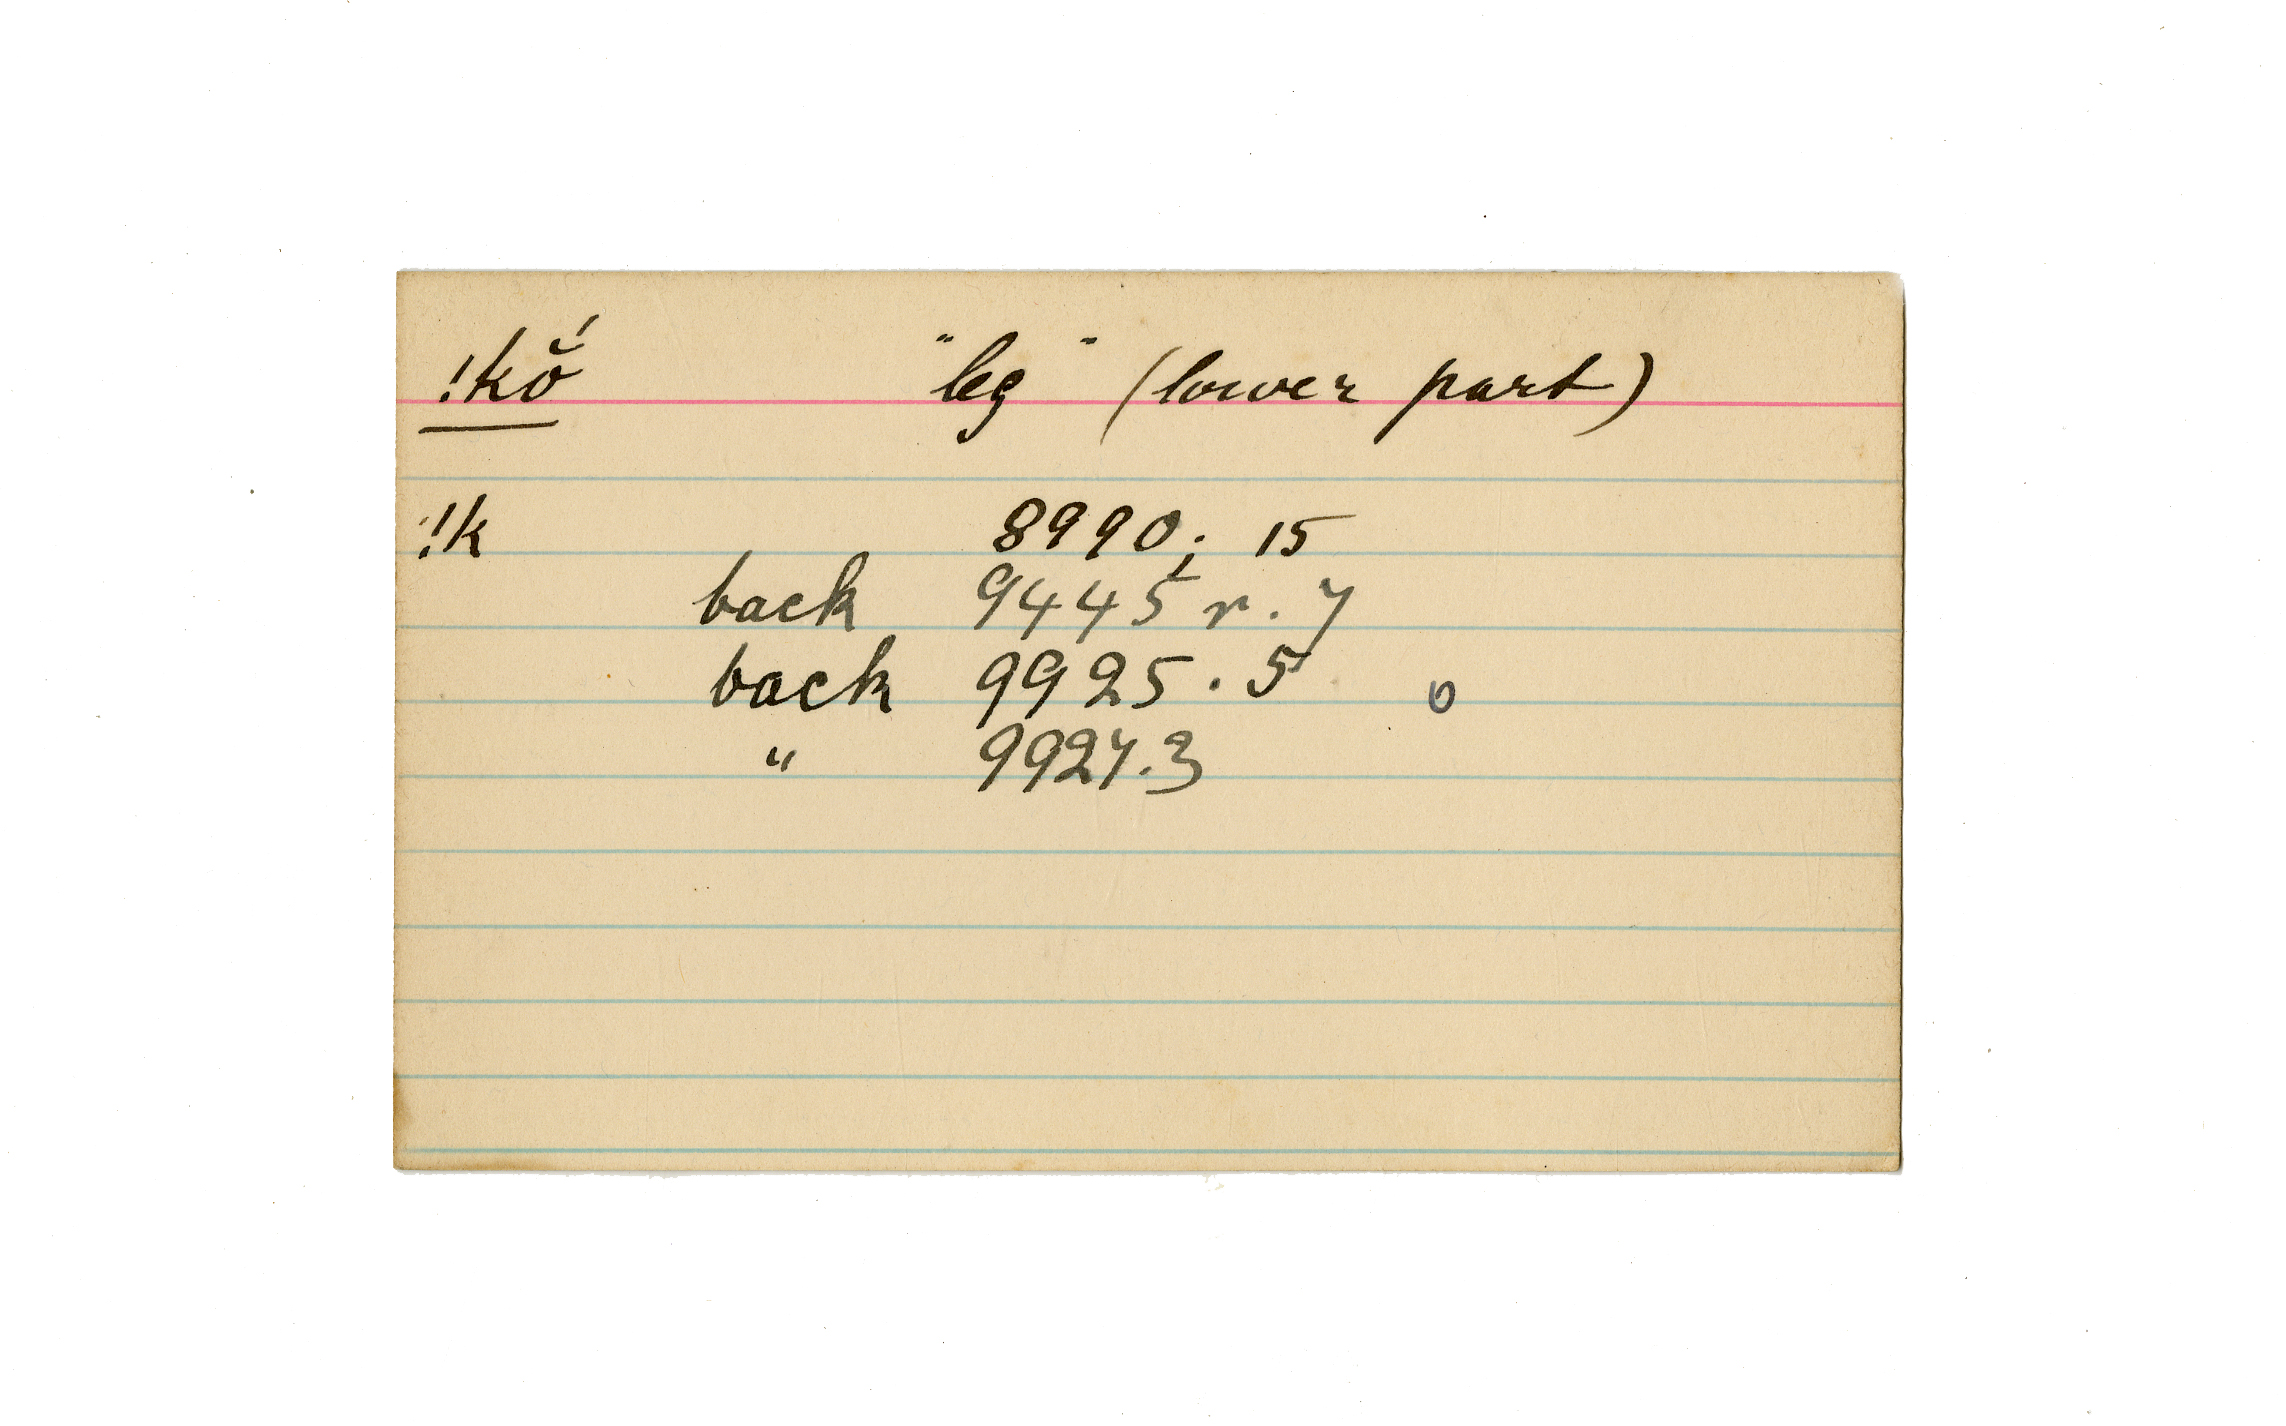 !kŏ́ "leg" (lower part)
!k 8990; 15
back 9445 r. 7
back 9925. 5 o
" 9927.3